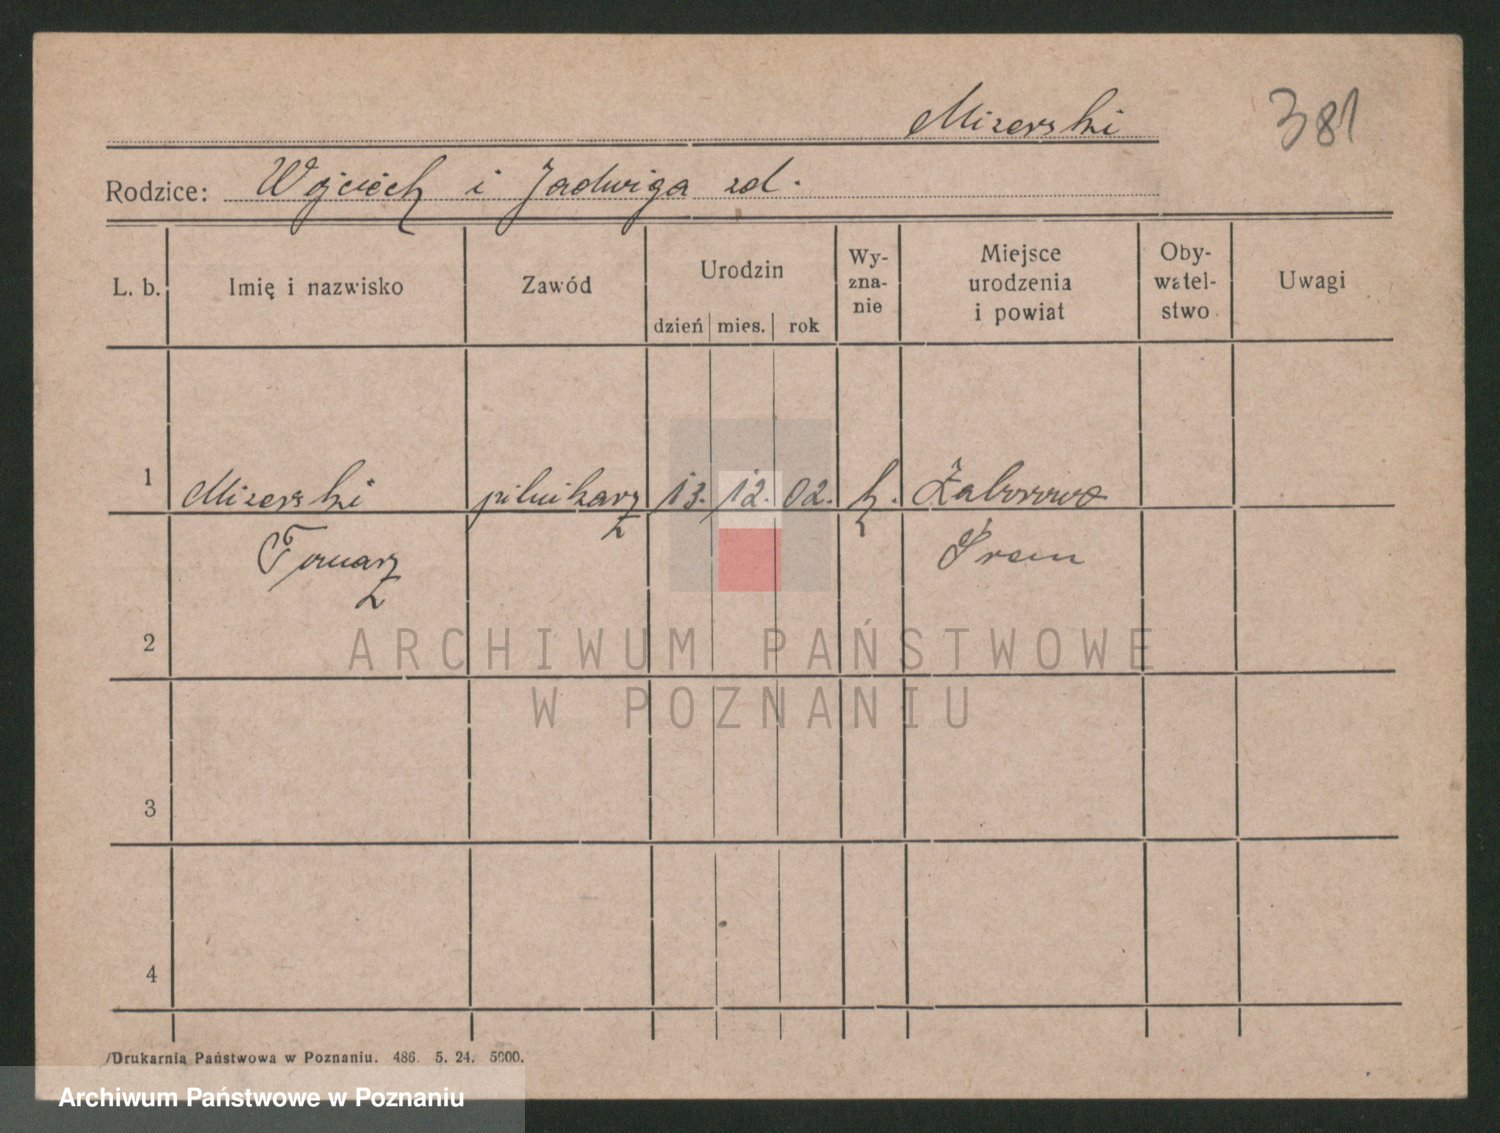 Mizerski
381
Rodzice: Wojciech i Jadwiga zd.
L. b. Imię i nazwisko Zawód Urodzin dzień mies. rok Wy-zna-nie Miejsce urodzenia i powiat Oby-watel-stwo Uwagi
1 Mizerski pilnikarz 13. 12. 02. k. Zaborowo
Tomasz Śrem
2
3
4
Drukarnia Państwowa w Poznaniu. 486. 5. 24. 5000.
ARCHIWUM PAŃSTWOWE
W POZNANIU
Archiwum Państwowe w Poznaniu